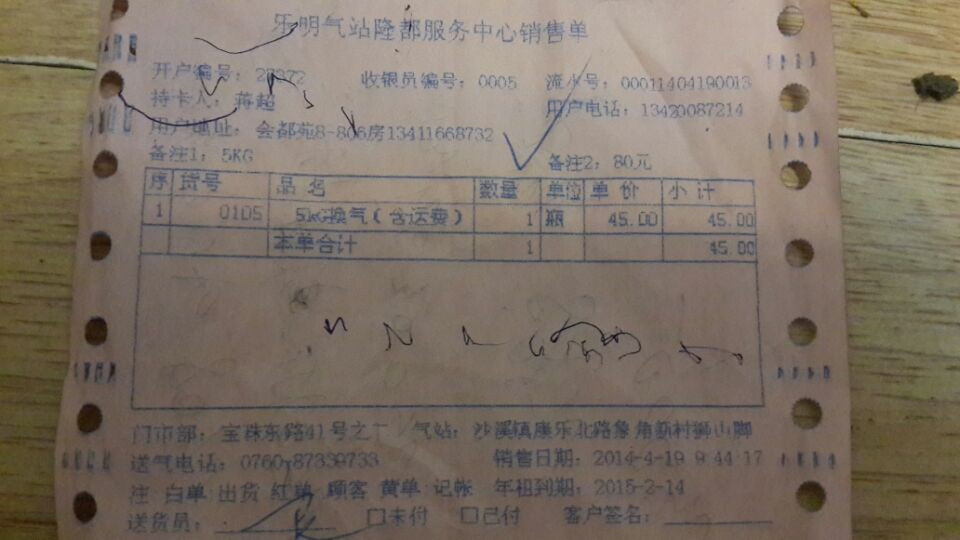 乐明气站隆都服务中心销售单
开户编号: 27372 收银员编号: 0005 流水号: 00011404190013
持卡人: 蒋超 用户电话: 13420087214
用户地址: 会都苑8-806房13411668732
备注1: 5KG 备注2: 80元
序 货号 品 名 数量 单位 单 价 小 计
1 0105 5KG换气(含运费) 1 瓶 45.00 45.00
本单合计 1 45.00
门市部: 宝珠东路41号之 气站: 沙溪镇康乐北路象角新村狮山脚
送气电话: 0760-87339733 销售日期: 2014-4-19 9:44:17
注:白单 出货 红单 顾客 黄单 记帐 年租到期: 2015-2-14
送货员: □未付 □已付 客户签名: